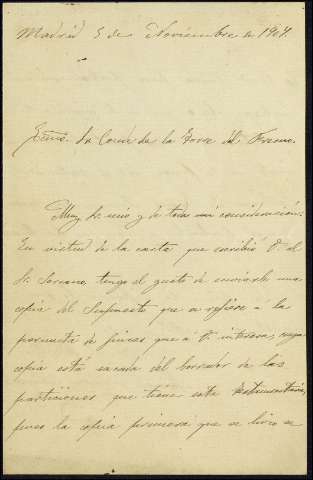 Madrid 5 de Noviembre de 1904.
Excmo. Sr Conde de la Torre del Fresno.
Muy Sr. mio y de toda mi consideración:
En virtud de la carta que escribió V. al
Sr. Soriano, tengo el gusto de enviarle una
copia del que se refiere á la
permuta de fincas que á V. interesa, cuya
copia está sacada del borrador de las
particiones que tiene esta testamentaria,
pues la copia primera que se libró se